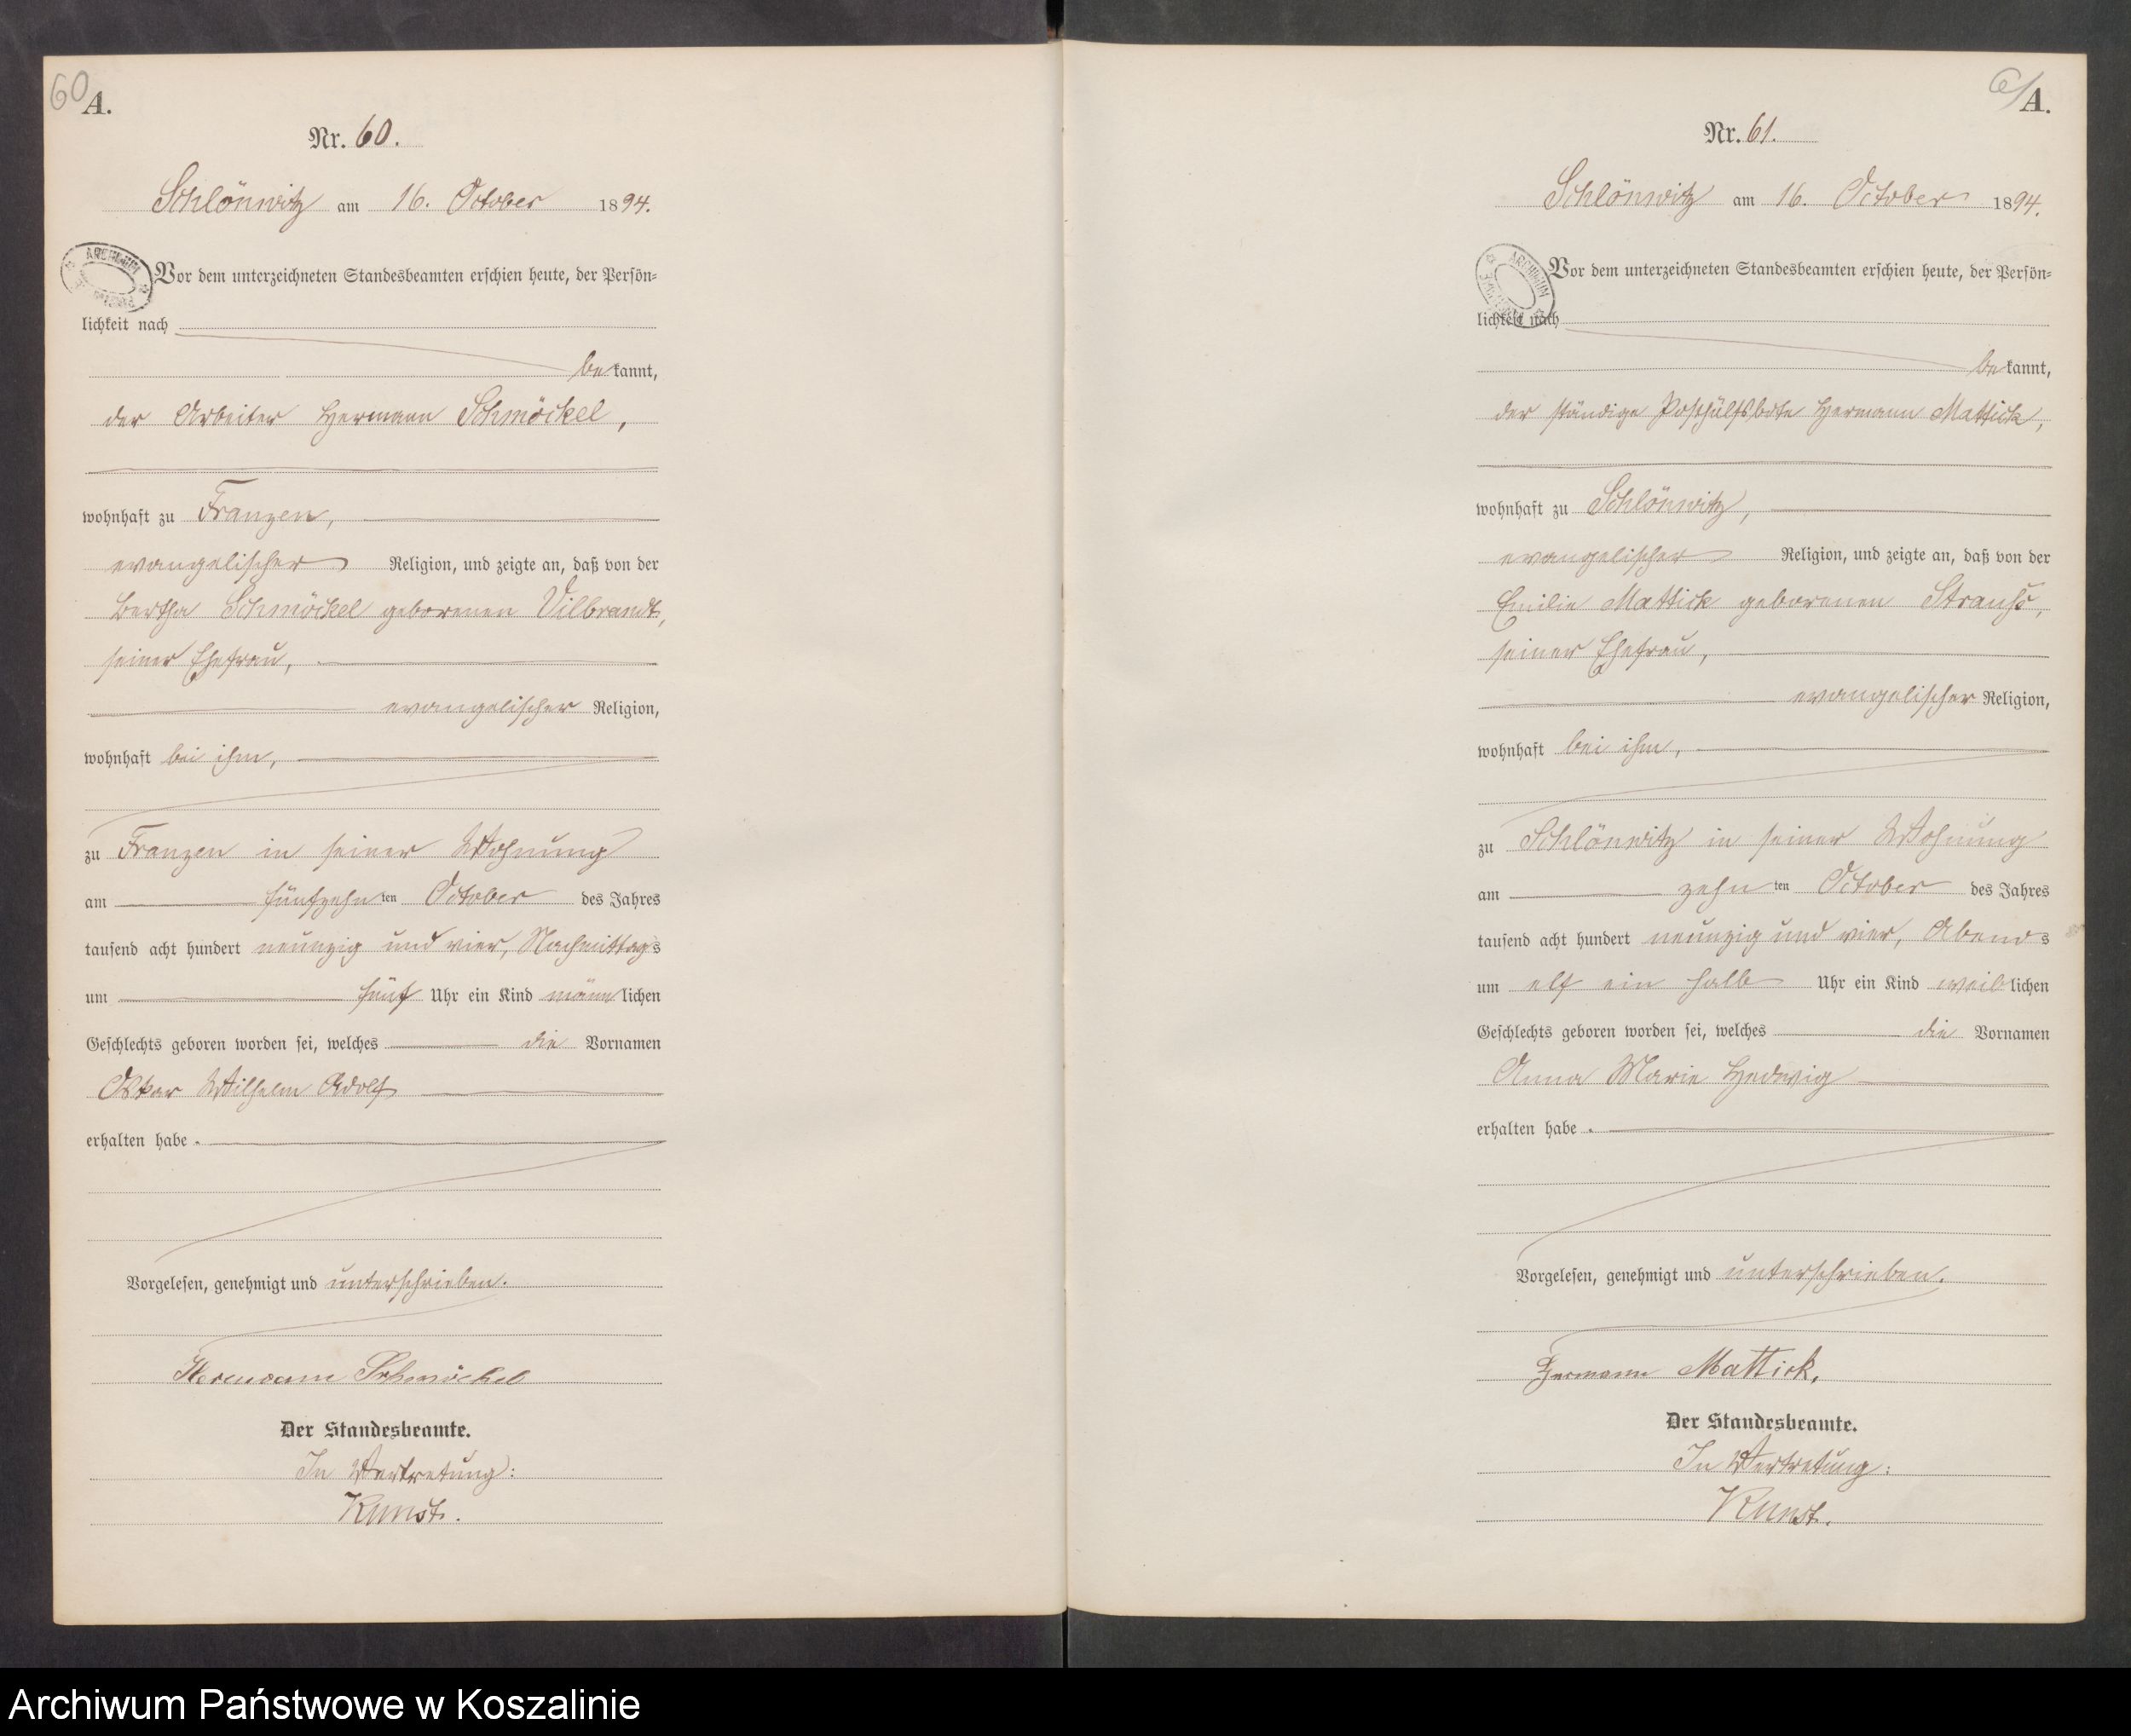 60
A.
Nr. 60.
Schlönwitz am 16. October 1894.
ARCHIWUM
Vor dem unterzeichneten Standesbeamten erschien heute, der Persön-
lichkeit nach
bekannt,
der Arbeiter Hermann Schmöckel,
wohnhaft zu Franzen,
evangelischer Religion, und zeigte an, daß von der
Bertha Schmöckel geborenen Vilbrandt,
seiner Ehefrau,
evangelischer Religion,
wohnhaft bei ihm,
zu Franzen in seiner Wohnung
am fünfzehnten October des Jahres
tausend acht hundert neunzig und vier, Nachmittags
um fünf Uhr ein Kind männlichen
Geschlechts geboren worden sei, welches die Vornamen
Oskar Wilhelm Adolf
erhalten habe.
Vorgelesen, genehmigt und unterschrieben.
Hermann Schmöckel
Der Standesbeamte.
In Vertretung:
Kunst.
61
A.
Nr. 61.
Schlönwitz am 16. October 1894.
ARCHIWUM
Vor dem unterzeichneten Standesbeamten erschien heute, der Persön-
lichkeit nach
bekannt,
der ständige Posthülfsbote Hermann Mattick,
wohnhaft zu Schlönwitz,
evangelischer Religion, und zeigte an, daß von der
Emilie Mattick geborenen Strauß,
seiner Ehefrau,
evangelischer Religion,
wohnhaft bei ihm,
zu Schlönwitz in seiner Wohnung
am zehnten October des Jahres
tausend acht hundert neunzig und vier, Abends
um elf ein halb Uhr ein Kind weiblichen
Geschlechts geboren worden sei, welches die Vornamen
Anna Marie Hedwig
erhalten habe.
Vorgelesen, genehmigt und unterschrieben.
Hermann Mattick,
Der Standesbeamte.
In Vertretung:
Kunst.
Archiwum Państwowe w Koszalinie